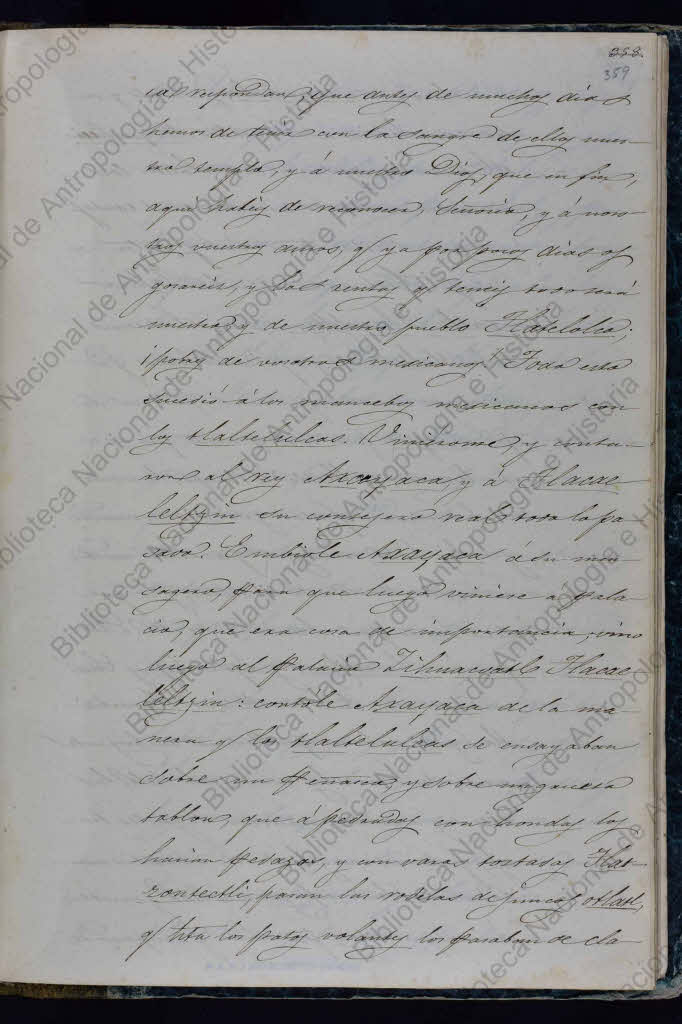 358
359
respondan, que antes de muchos dias
hemos de teñir con la sangre de ellos nues-
tro templo, y á nuestro Dios, que en fin,
aqui habeis de reconocer Señorio, y á noso-
tros vuestros amos, q ya por pocos dias os
gozareis, y las rentas q teneis todo será
nuestro, y de nuestro pueblo Tlatelolco;
¡pobres de vosotros mexicanos! Todo esto
sucedió á los mancebos mexicanos con
los tlaltelulcas. Vinieronse, y conta-
ron al rey Axayaca, y á Tlacae
leltzin su consejero real todo lo pa-
sado. Embiole Axayaca á su men-
sagero, para que luego viniese a Pala
cio, que era cosa de importancia, vino
luego al Palacio Zihuacoatl Tlacae
leltzin: contóle Axayaca de la ma
nera q los tlaltelulcas se ensayaban
sobre un Penasco, y sobre un grueso
tablon, que á pedradas con hondas los
hacian pedazos, y con varas tostadas Tlat-
zontectli, pasan las rodelas de juncos, otlatl,
q hta los patos volantes los pasaban de cla
Biblioteca Nacional de Antropología e Historia